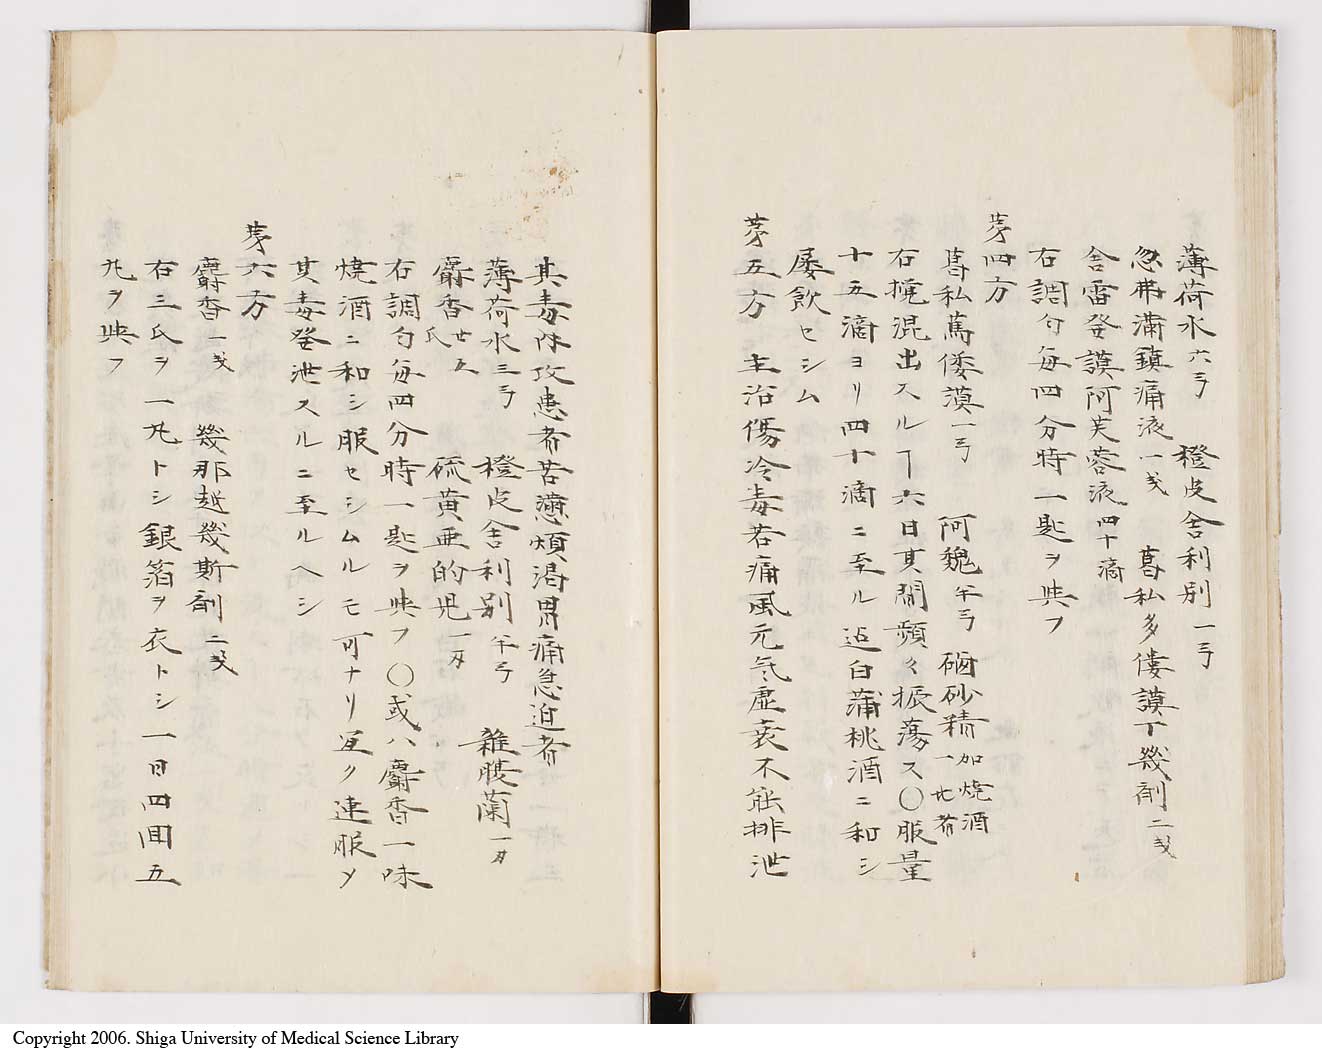 薄荷水六弓　橙皮舎利別一弓
忽弗満鎮痛液一戔　葛私多僂謨丁幾剤二戔
舎雷登謨阿芙蓉液四十滴
右調匀毎四分時一匙ヲ與フ
第四方
葛私蔫倭謨一弓　阿魏半弓　硇砂精加焼酒一比斉
右攪混出スルヿ六日其間頻々振荡ス〇服量
十五滴ヨリ四十滴ニ至ル迠白蒲桃酒ニ和シ
屡飲セシム
第五方　主治傷冷毒若痛風元気虚衰不能排泄
其毒体攻患者苦懣煩渇胃痛急迫者
薄荷水三弓　橙皮舎利別半弓　雜腹蘭一刄
麝香廿五氏　硫黄亜的児一刄
右調匀毎四分時一匙ヲ與フ〇或ハ麝香一味
焼酒ニ和シ服セシムルモ可ナリ宜ク連服〆
其毒發泄スルニ至ルヘシ
第六方
麝香一戔　幾那越幾斯剤二戔
右三氏ヲ一丸トシ銀箔ヲ衣トシ一日四囬五
丸ヲ與フ
Copyright 2006. Shiga University of Medical Science Library